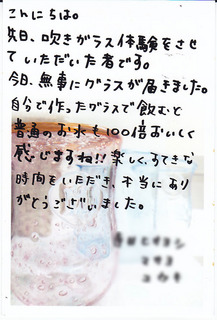 こんにちは。
先日、吹きガラス体験をさせ
ていただいた者です。
今日、無事にグラスが届きました。
自分で作ったグラスで飲むと
普通のお水も100倍おいしく
感じますね!!楽しく、すてきな
時間をいただき、本当にあり
がとうございました。